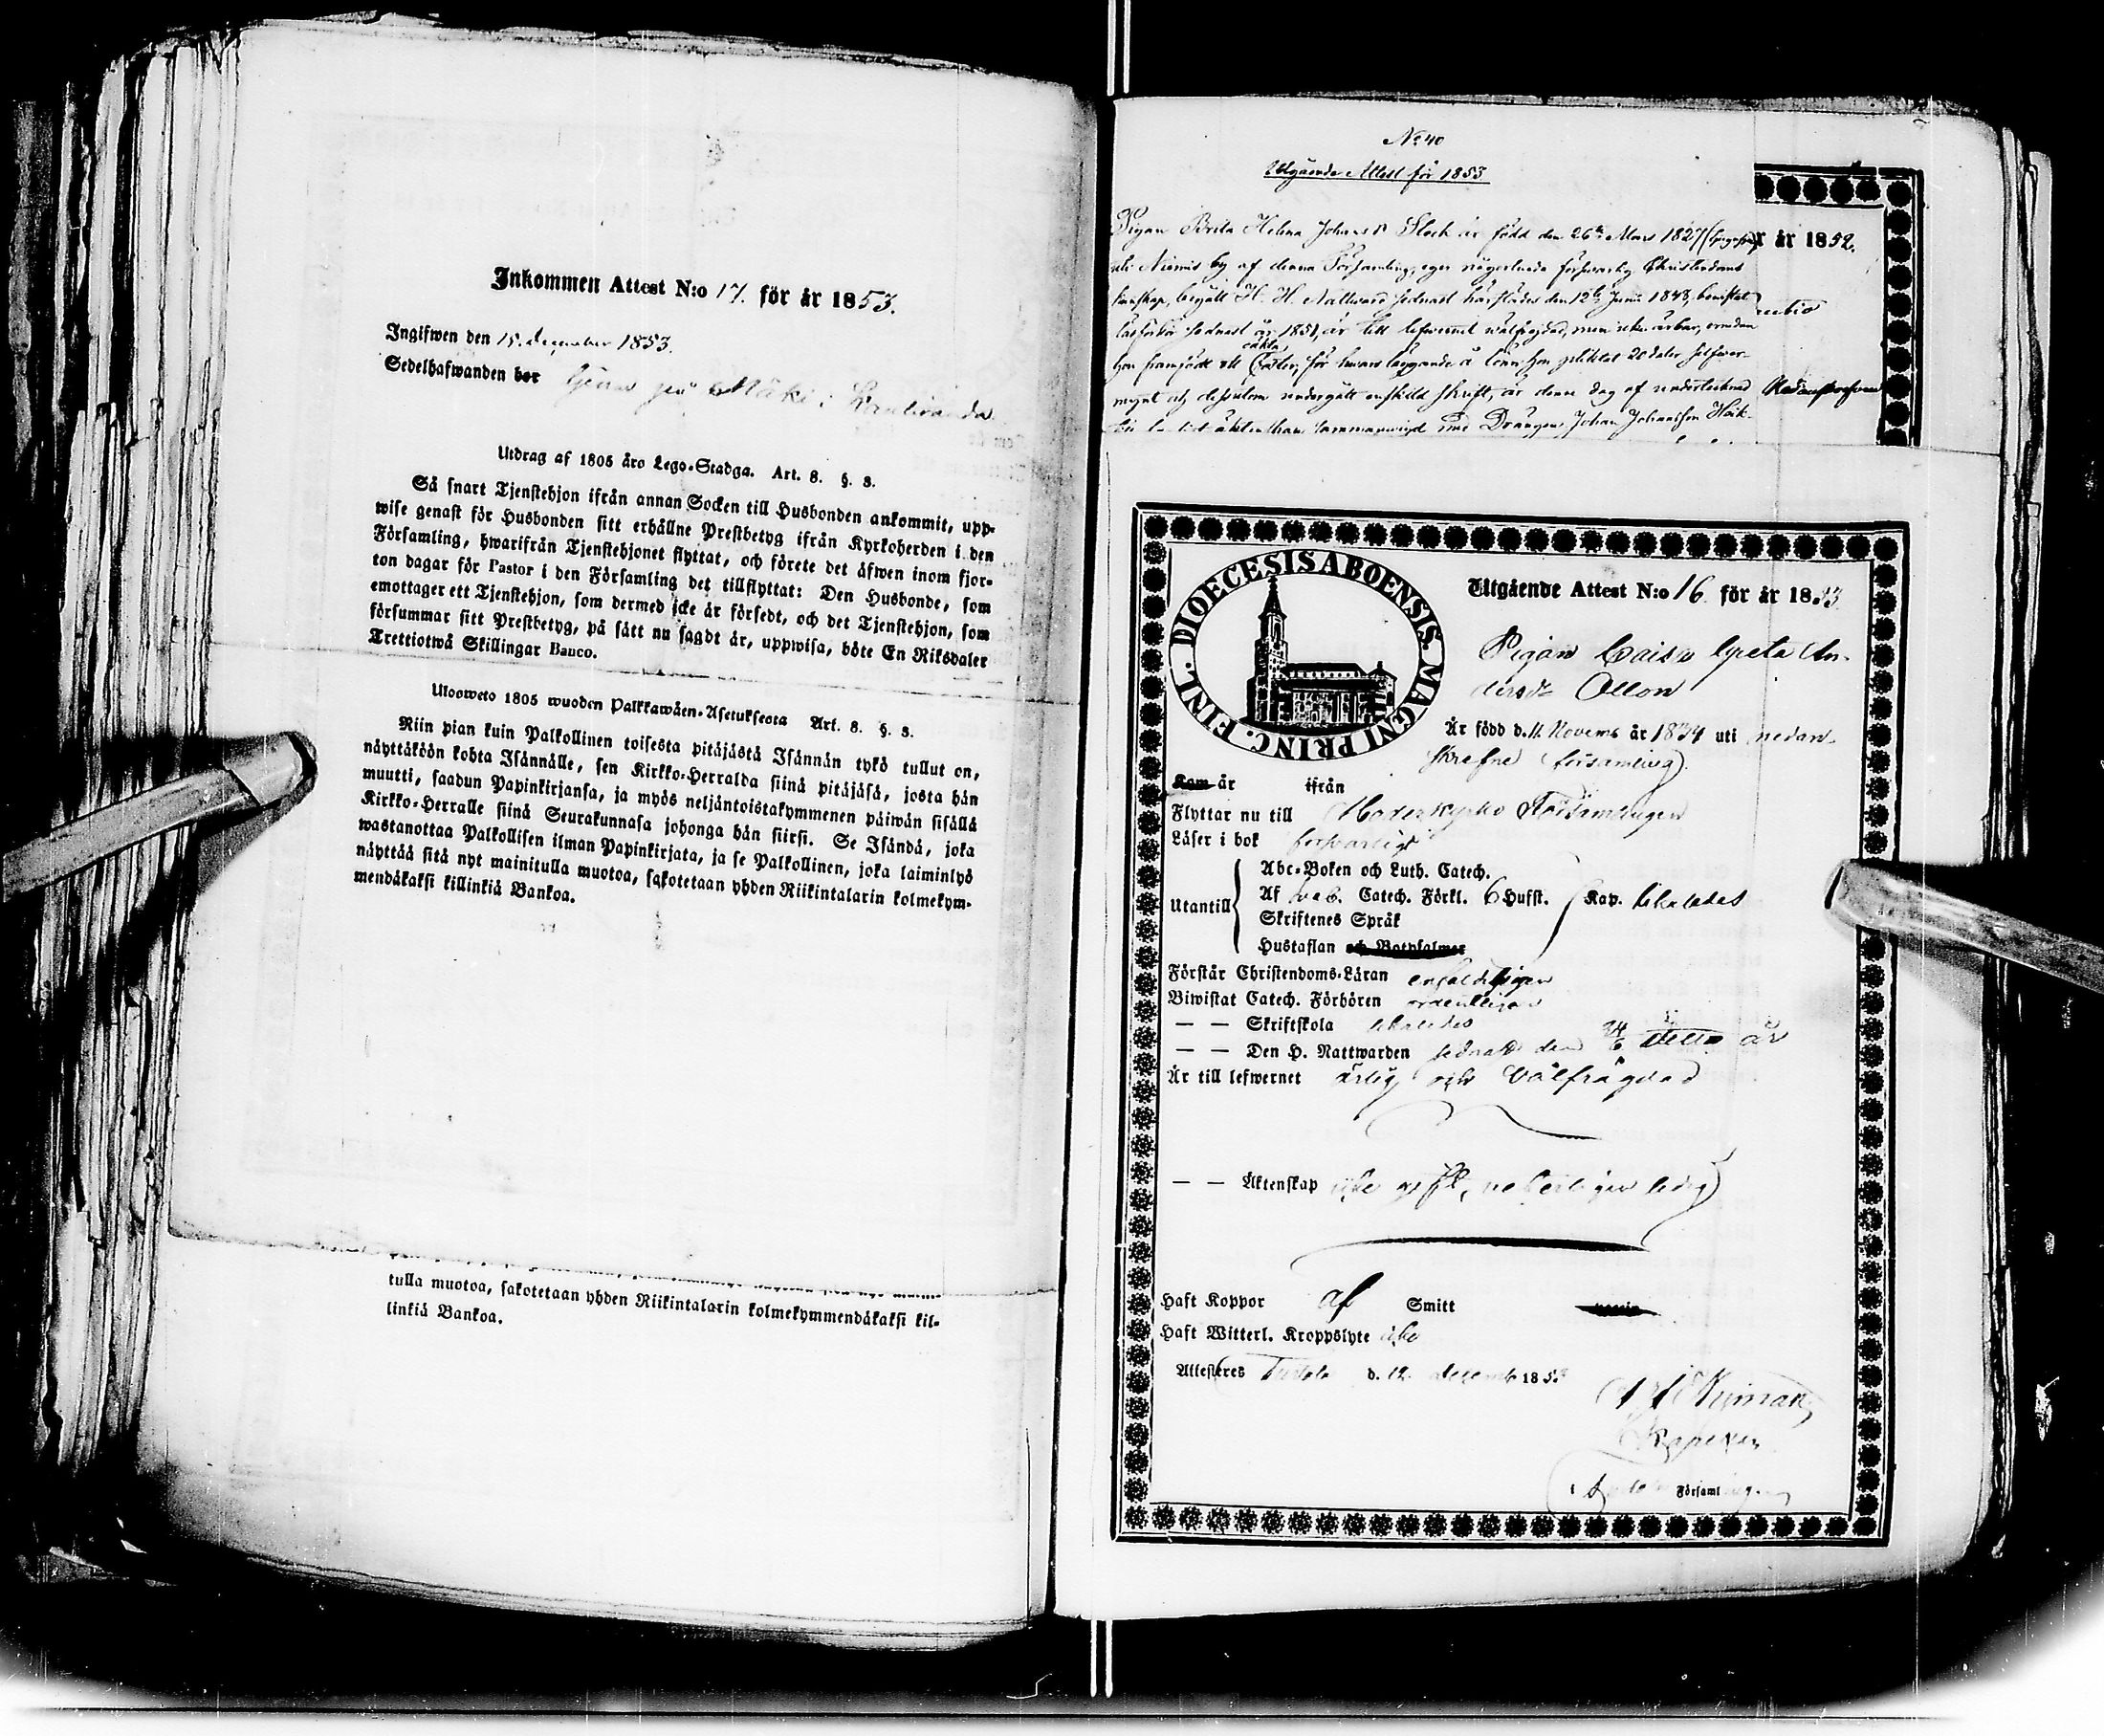 Inkommen Attest N:o 17. för år 1853.
Ingifwen den 15. december 1853.
Sedelhafwanden bor
Utdrag af 1805 års Lego-Stadga. Art. 8. §. 3.
Så snart Tjenstehjon ifrån annan Socken till Husbonden ankommit, upp-
wise genast för Husbonden sitt erhållne Prestbetyg ifrån Kyrkoherden i den
Församling, hwarifrån Tjenstehjonet flyttat, och förete det äfwen inom fjor-
ton dagar för Pastor i den Församling det tillflyttat: Den Husbonde, som
emottager ett Tjenstehjon, som dermed icke är försedt, och det Tjenstehjon, som
försummar sitt Prestbetyg, på sätt nu sagdt är, uppwisa, böte En Riksdaler
Trettiotwå Skillingar Banco.
Ulosweto 1805 wuoden Palkkawäen-Asetuksesta Art. 8. §. 3.
Niin pian kuin Palkollinen toisesta pitäjästä Isännän tykö tullut on,
näyttäköön kohta Isännälle, sen Kirkko-Herralda siinä pitäjäsä, josta hän
muutti, saadun Papinkirjansa, ja myös neljäntoistakymmenen päiwän sisällä
Kirkko-Herralle siinä Seurakunnasa johonga hän siirsi. Se Isändä, joka
wastanottaa Palkollisen ilman Papinkirjata, ja se Palkollinen, joka laiminlyö
näyttää sitä nyt mainitulla muotoa, sakotetaan yhden Riikintalarin kolmekym-
mendäkaksi killinkiä Bankoa.
tulla muotoa, sakotetaan yhden Riikintalarin kolmekymmendäkaksi kil-
linkiä Bankoa.
No 40
Utgående Attest för 1853.
Pigan Brita Helena Johansdr är född den 26te Mars 1827
år 1852.
Niemis by af denna Församling, eger Christendoms
kunskap, begått H. H. Nattward sednast härstädes den 12te Junii 1848,
sednast år 1851, är till lefwernet wälfrejdad, men
hon framfödt ett
oäkta
enskildt skrift, är denna dag af undertecknad
Drängen Johan Johansson
DIOECESIS ABOENSIS. MAGNI PRINC. FINL.
Utgående Attest N:o 16. för år 1853
Pigan Caisa Greta An-
dersdr Ollon
Är född d. 11 Novemb år 1834 uti nedan-
skrefne församling.
Kom år ifrån
Flyttar nu till Moderkyrko Församlingen
Läser i bok försvarligt
Utantill
Abc-Boken och Luth. Catech.
Af Catech. Förkl. 6 Hufst. Kap. likaledes
Skriftenes Språk
Hustaflan och Botpsalmer
Förstår Christendoms-Läran enfaldeligen
Biwistat Catech. Förhören ordentligen
— — Skriftskola likaledes
— — Den H. Nattwarden sednast den 24/6 detta år
Är till lefwernet ärlig och Välfrägdad
— — Äktenskap icke gift, ledig
Haft Koppor af Smitt
Haft Witterl. Kroppslyte icke
Attesteras d. 12 decemb 1853
Församl